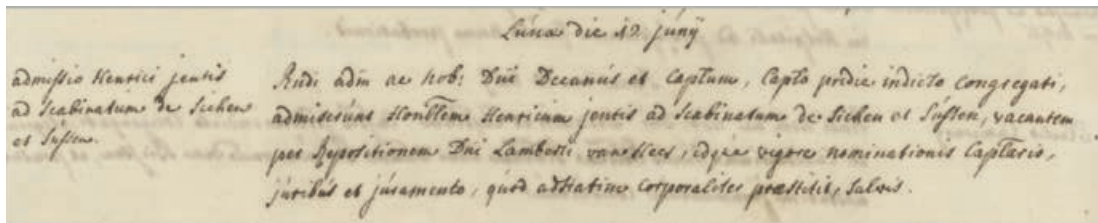 Lúna die 12 júnÿ
admissio Henrici jentis
ad scabinatum de Sichen
et Sússen.
Rndi adm ac nob: Dni Decanús et Captum, Capto pridie indicto congregati,
admiserúnt Honblem Henricum jentis ad scabinatum de Sichen et Sússen, vacantem
per depositionem Dni Lamberti van Hees, idque vigore nominationis Captaris,
júribús et júramento, qúod actutum corporaliter præstitit, salvis.